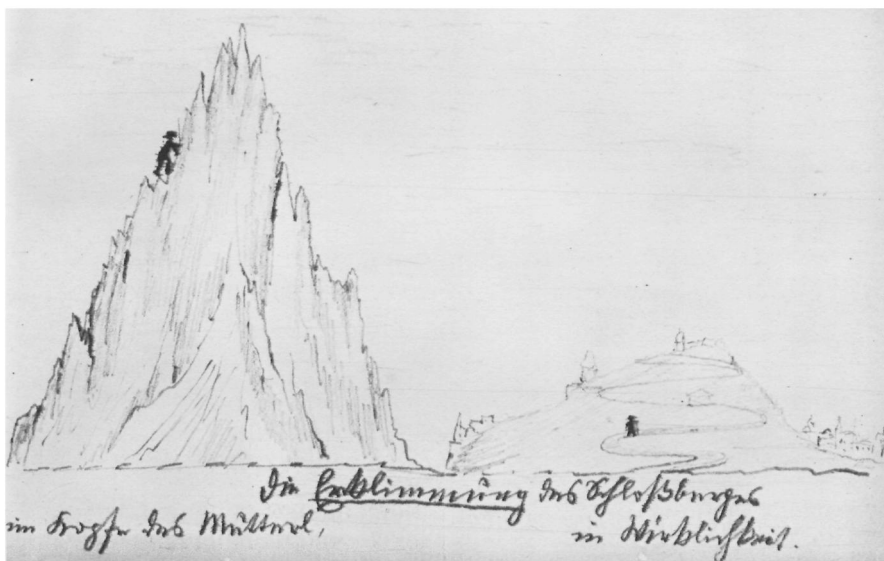 die Erklimmung des Schloßberges
im Kopfe des Mütterl,
in Wirklichkeit.